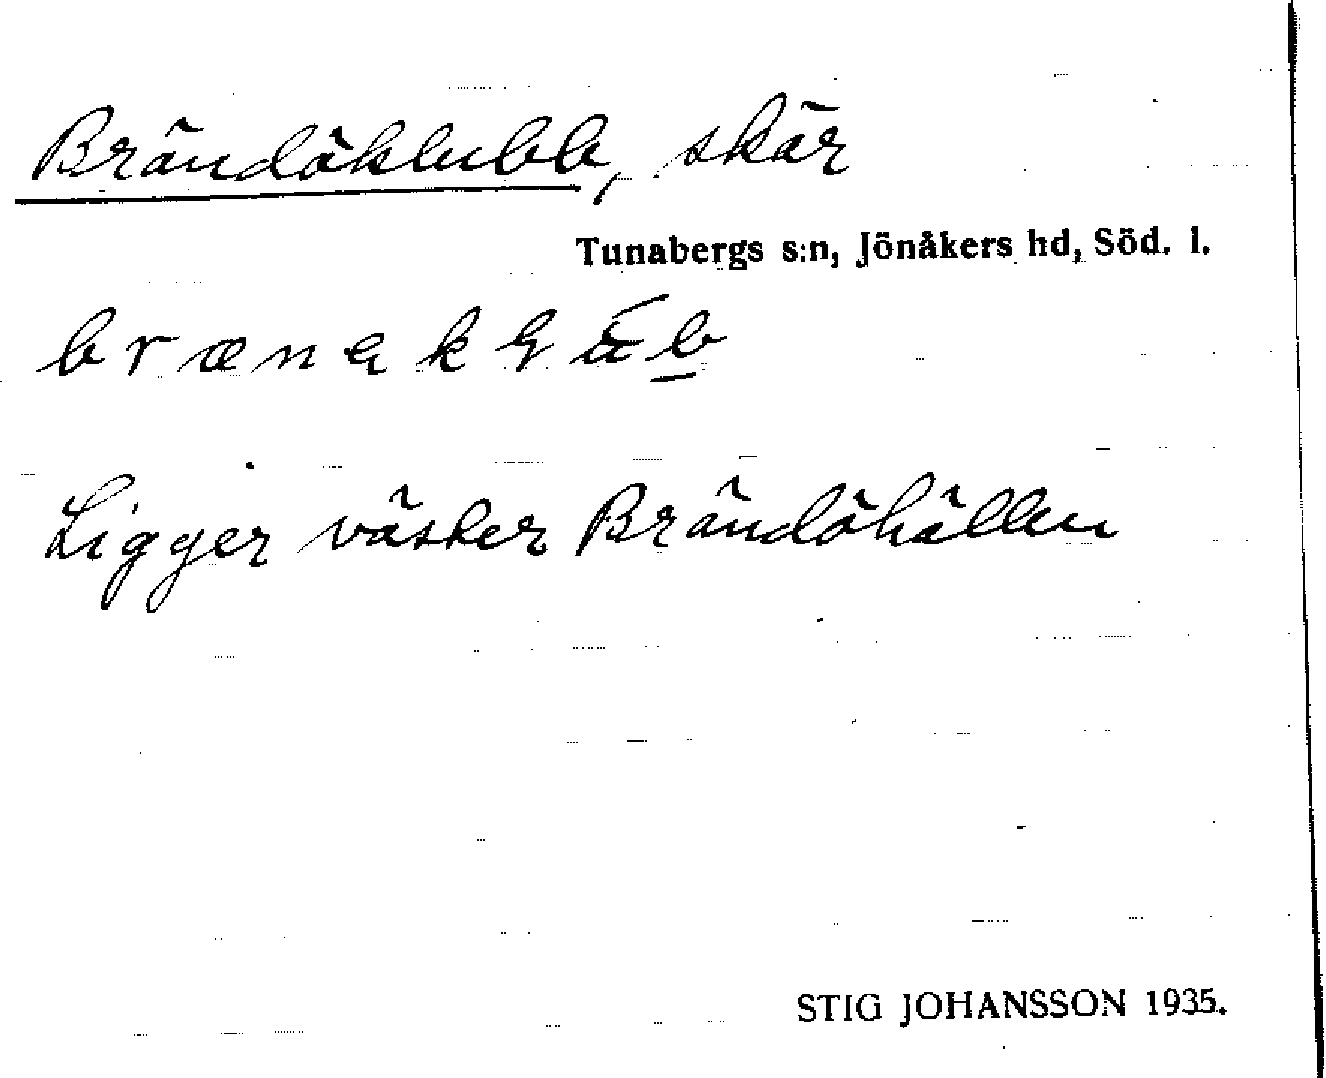 Brändöklubb, skär
Tunabergs s:n, Jönåkers hd, Söd. l.
Ligger väster Brändöhällen
STIG JOHANSSON 1935.